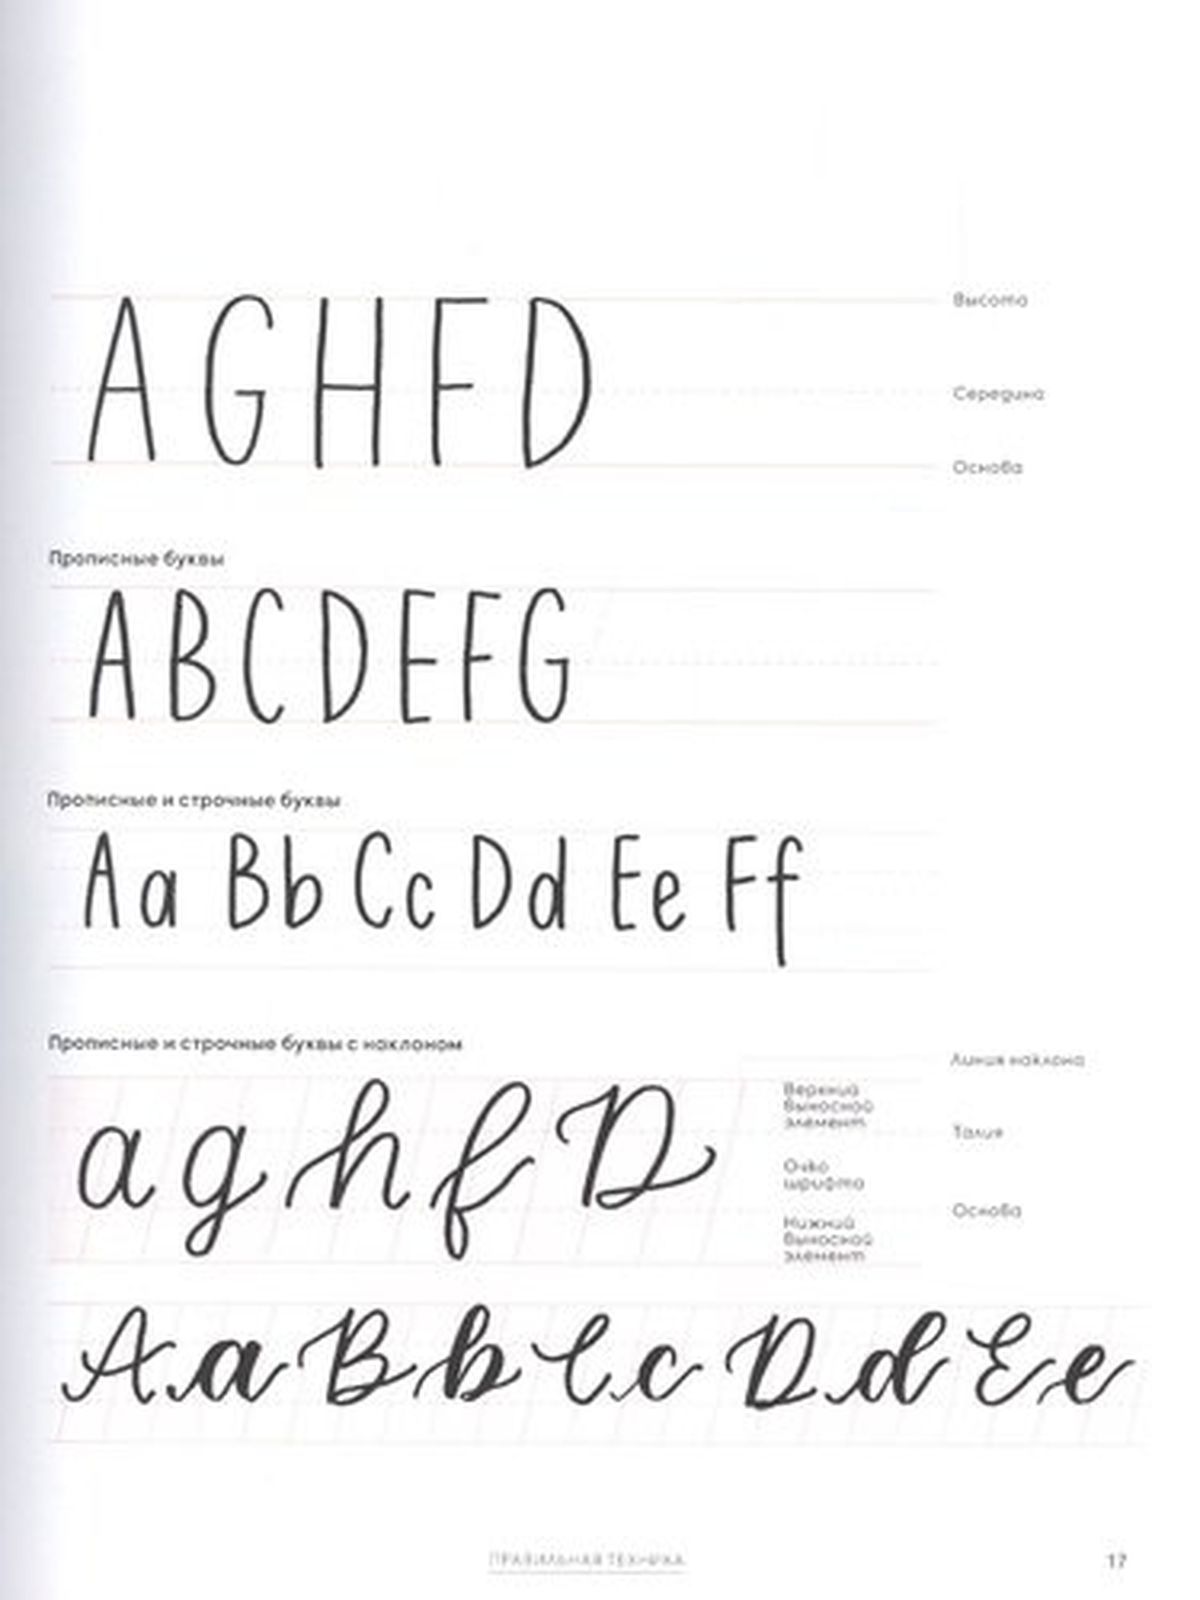 A G H F D
Высота
Середина
Основа
Прописные буквы
A B C D E F G
Прописные и строчные буквы
Aa Bb Cc Dd Ee Ff
Прописные и строчные буквы с наклоном
a g h f D
Линия наклона
Верхний
выносной
элемент
Талия
Очко
шрифта
Основа
Нижний
выносной
элемент
Aa Bb Cc Dd Ee
ПРАВИЛЬНАЯ ТЕХНИКА
17